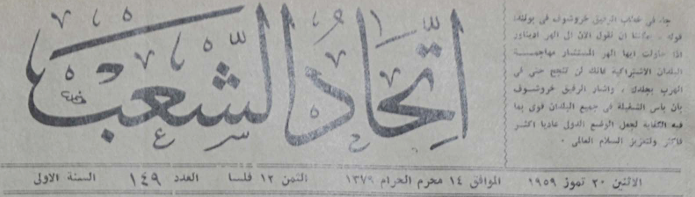 اتحاد الشعب
جاء في خطاب الرفيق خروشوف في بولندا
قوله - يمكننا ان نقول الان الى الهر اديناور
اذا حاولت ايها الهر المستشار مهاجمة
البلدان الاشتراكية فانك لن تنجح حتى في
الهرب بجلدك ، واشار الرفيق خروشوف
بان باس الشغيلة في جميع البلدان قوى بما
فيه الكفاية لجعل الوضع الدولى عاديا اكثر
فاكثر ولتعزيز السلام العالمى -
الاثنين ٢٠ تموز ١٩٥٩ الموافق ١٤ محرم الحرام ١٣٧٩ الثمن ١٢ فلسا العدد ١٤٩ السنة الاولى